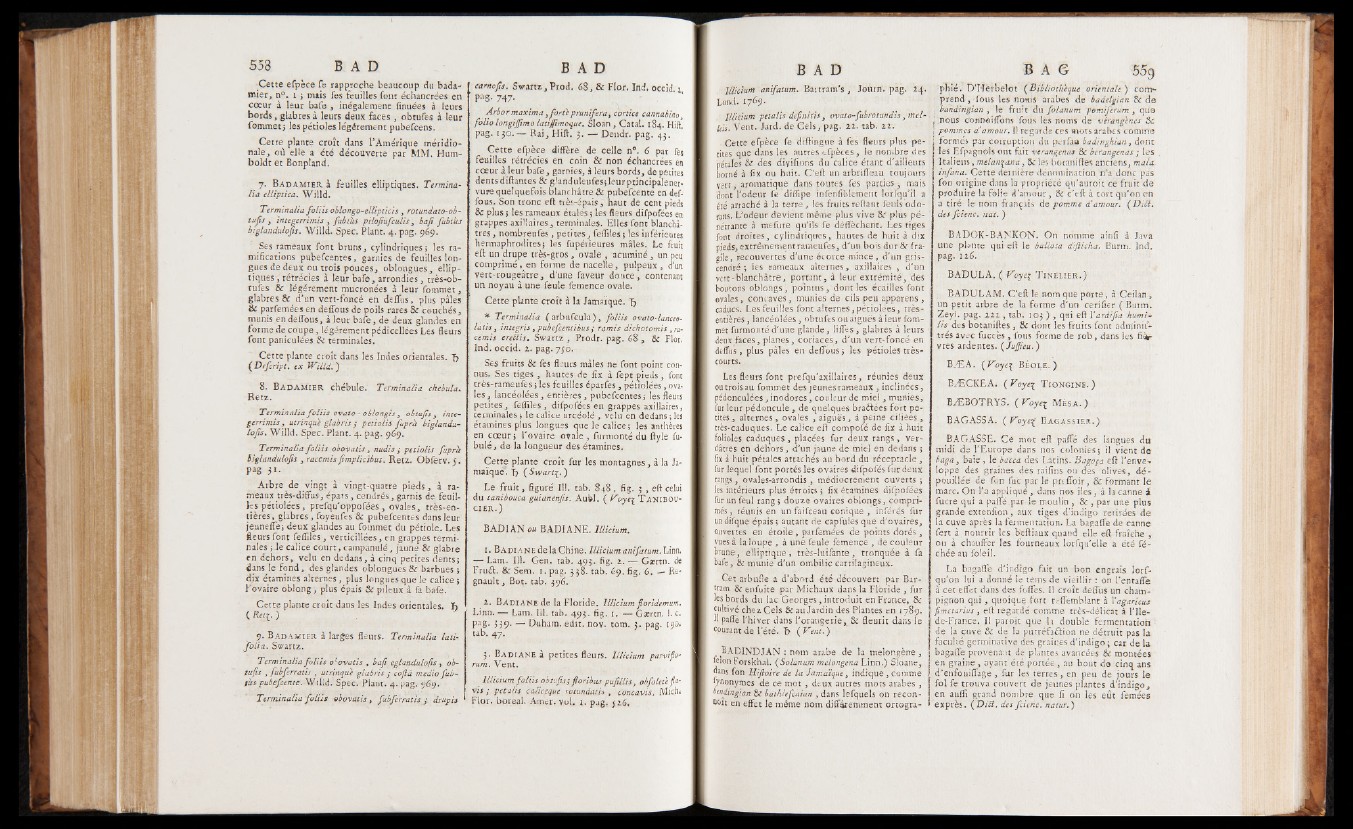 558 B A D
Cette efpèce fe rapproche beaucoup du bada-
mier, n°. 1 ; mais fes feuilles font échancrées en
cœur à leur bafe, inégalement finuées à leurs
bords, glabres à leurs deux faces, obtufes à leur
fommet; les pétioles légérement pubefcens.
Cette plante croît dans l'Amérique méridio-
nale, où elle a été découverte par MM. Hum-
boldt et Bonpland.
7. BADAMIER à feuilles elliptiques. Termina-
lia elliptica. Willd.
Terminalia foliis oblongo-ellipticis, rotundato-ob-
tufis, integerrimis, fubtùs pilofiufculis, bafi fubtùs
biglandulofis. Willd. Spec. Plant. 4. pag. 969.
Ses rameaux font bruns, cylindriques; les ra-
mifications pubefcentes, garnies de feuilles lon-
gues de deux ou trois pouces, oblongues, ellip-
tiques, rétrécies à leur bafe, arrondies, très-ob-
tufes & légérement mucronées à leur fommet,
glabres & d'un vert-foncé en deffus, plus pâles
& parfemées en deffous de poils rares & couchés,
munis en deffous, à leur bafe, de deux glandes en
forme de coupe, légérement pédicellées. Les fleurs
font paniculées & terminales.
Cette plante croît dans les Indes orientales. ♄
(Defcript. ex Willd.)
8. BADAMIER chébule. Terminalia chebula.
Retz.
Terminalia foliis ovato-oblongis, obtufis, inte-
gerrimis, utrinquè glabris; petiolis fuprà biglandu-
lofis. Willd. Spec. Plant. 4. pag. 969.
Terminalia foliis obovatis, nudis; petiolis fuprà
biglandulofis, racemis fimplicibus. Retz. Obferv. 5.
pag. 31.
Arbre de vingt à vingt-quatre pieds, à ra-
meaux très-diffus, épars, cendrés, garnis de feuil-
les pétiolées, prefqu'oppofées, ovales, très-en-
tières, glabres, foyeufes & pubefcentes dans leur
jeuneffe; deux glandes au fommet du pétiole. Les
fleurs font feffiles, verticillées, en grappes termi-
nales; le calice court, campanulé, jaune & glabre
en dehors, velu en dedans, à cinq petites dents;
dans le fond, des glandes oblongues & barbues;
dix étamines alternes, plus longues que le calice;
l'ovaire oblong, plus épais & pileux à fa bafe.
Cette plante croît dans les Indes orientales. ♄
(Retz.)
9. BADAMIER à larges fleurs. Terminalia lati-
folia. Swartz.
Terminalia foliis obovatis, bafi eglandulofis, ob-
tufis, fubferratis, utrinquè glabris; coftâ medio fub-
tùs pubefcente. Willd. Spec. Plant. 4. pag. 969.
Terminalia foliis obovatis, fubferratis; drupis
B A D
carnofis. Swartz, Prod. 68, & Flor. Ind. occid. 2,
pag. 747.
Arbor maxima, fortè prunifera, cortice cannabino,
folio longiffimo latiffimoque. Sloan, Catal. 184. Hift.
pag. 130. — Rai, Hift. 3. — Dendr. pag. 43.
Cette efpèce diffère de celle n°. 6 par fes
feuilles rétrécies en coin & non échancrées en
cœur à leur bafe, garnies, à leurs bords, de petites
dents diftantes & glanduleufes; leur principale ner-
vure quelquefois blanchâtre & pubefcente en def-
fous. Son tronc eft très-épais, haut de cent pieds
& plus; les rameaux étalés; les fleurs difpofées en
grappes axillaires, terminales. Elles font blanchâ-
tres, nombreufes, petites, feffiles; les inférieures
hermaphrodites; les fupérieures mâles. Le fruit
eft un drupe très-gros, ovale, acuminé, un peu
comprimé, en forme de nacelle, pulpeux, d'un
vert-rougeâtre, d'une faveur douce, contenant
un noyau à une feule femence ovale.
Cette plante croît à la Jamaïque. ♄
* Terminalia (arbufcula), foliis ovato-lanceo-
latis, integris, pubefcentibus; ramis dichotomis, ra-
cemis erectis. Swartz, Prodr. pag. 68, & Flor.
Ind. occid. 2. pag. 750.
Ses fruits & fes fleurs mâles ne font point con-
nus. Ses tiges, hautes de fix à fept pieds, font
très-rameufes; les feuilles éparfes, pétiolées, ova-
les, lancéolées, entières, pubefcentes; les fleurs
petites, feffiles, difpofées en grappes axillaires,
terminales; le calice urcéolé, velu en dedans; les
étamines plus longues que le calice; les anthères
en cœur; l'ovaire ovale, furmonté du ftyle fu-
bulé, de la longueur des étamines.
Cette plante croît fur les montagnes, à la Ja-
maïque. ♄ (Swartz.)
Le fruit, figuré Ill. tab. 848, fig. 3, eft celui
du tanibouca guianenfis. Aubl. (Voyez TANIBOU-
CIER.)
BADIAN ou BADIANE. Illicium.
1. BADIANE de la Chine. Illicium anifatum. Linn.
— Lam. Ill. Gen. tab. 493. fig. 2. — Gærtn. de
Fruct. & Sem. 1. pag. 338. tab. 69. fig. 6. — Re-
gnault, Bot. tab. 396.
2. BADIANE de la Floride. Illicium floridanum.
Linn. — Lam. Ill. tab. 493. fig. 1. — Gærtn. l. c.
pag. 339. — Duham. edit. nov. tom. 3. pag. 190.
tab. 47.
3. BADIANE à petites fleurs. Illicium parviflo-
rum. Vent.
Illicium foliis obtufis; floribus pufillis, obfoletè fla-
vis; petalis caliceque rotundatis, concavis. Mich.
Flor. boreal. Amer. vol. 1. pag. 326.
B A D
Illicium anifatum. Bartram's, Journ. pag. 24.
Lond. 1769.
Illicium petalis definitis, ovato-fubrotundis, mel-
leis. Vent. Jard. de Cels, pag. 22. tab. 22.
Cette efpèce fe diftingue à fes fleurs plus pe-
tites que dans les autres efpèces, le nombre des
pétales & des divifions du calice étant d'ailleurs
borné à fix ou huit. C'eft un arbriffeau toujours
vert, aromatique dans toutes fes parties, mais
dont l'odeur fe diffipe infenfiblement lorfqu'il a
été arraché à la terre, les fruits reftant feuls odo-
rans. L'odeur devient même plus vive & plus pé-
nétrante à mefure qu'ils fe deffèchent. Les tiges
font droites, cylindriques, hautes de huit à dix
pieds, extrêmement rameufes, d'un bois dur & fra-
gile, recouvertes d'une écorce mince, d'un gris-
cendré; les rameaux alternes, axillaires, d'un
vert-blanchâtre, portant, à leur extrémité, des
boutons oblongs, pointus, dont les écailles font
ovales, concaves, munies de cils peu apparens,
caducs. Les feuilles font alternes, pétiolées, très-
entières, lancéolées, obtufes ou aiguës à leur fom-
met furmonté d'une glande, liffes, glabres à leurs
deux faces, planes, coriaces, d'un vert-foncé en
deffus, plus pâles en deffous; les pétioles très-
courts.
Les fleurs font prefqu'axillaires, réunies deux
ou trois au fommet des jeunes rameaux, inclinées,
pédonculées, inodores, couleur de miel, munies,
fur leur pédoncule, de quelques bractées fort pe-
tites, alternes, ovales, aiguës, à peine ciliées,
très-caduques. Le calice eft compofé de fix à huit
folioles caduques, placées fur deux rangs, ver-
dâtres en dehors, d'un jaune de miel en dedans;
fix à huit pétales attachés au bord du réceptacle,
fur lequel font portés les ovaires difpofés fur deux
rangs, ovales-arrondis, médiocrement ouverts;
les intérieurs plus étroits; fix étamines difpofées
fur un feul rang; douze ovaires oblongs, compri-
més, réunis en un faifceau conique, inférés fur
un difque épais; autant de capfules que d'ovaires,
ouvertes en étoile, parfemées de points dorés,
vues à la loupe, à une feule femence, de couleur
brune, elliptique, très-luifante, tronquée à fa
bafe, & munie d'un ombilic cartilagineux.
Cet arbufte a d'abord été découvert par Bar-
tram & enfuite par Michaux dans la Floride, fur
les bords du lac Georges, introduit en France, &
cultivé chez Cels & au Jardin des Plantes en 1789.
Il paffe l'hiver dans l'orangerie, & fleurit dans le
courant de l'été. ♄ (Vent.)
BADINDJAN : nom arabe de la melongène,
felon Forskhal. (Solanum melongena Linn.) Sloane,
dans fon Hiftoire de la Jamaïque, indique, comme
fynonymes de ce mot, deux autres mots arabes,
bedengian & bathleschain, dans lefquels on recon-
noît en effet le même nom différemment ortogra-
B A G 559
phié. D'Herbelot (Bibliothèque orientale) com-
prend, fous les noms arabes de badelgian & de
bandingian, le fruit du folanum pomiferum, que
nous connoiffons fous les noms de verangènes &
pommes d'amour. Il regarde ces mots arabes comme
formés par corruption du perfan badinghian, dont
les Efpagnols ont fait verangenas & berangenas; les
Italiens, melanzana, & les botaniftes anciens, mala
infana. Cette dernière dénomination n'a donc pas
fon origine dans la propriété qu'auroit ce fruit de
produire la folie d'amour, & c'eft à tort qu'on en
a tiré le nom français de pomme d'amour. (Dict.
des fcienc. nat.)
BADOK-BANKON. On nomme ainfi à Java
une plante qui eft le ballota difticha. Burm. Ind.
pag. 126.
BADULA. (Voyez TINELIER.)
BADULAM. C'eft le nom que porte, à Ceilan,
un petit arbre de la forme d'un cerifier (Burm.
Zeyl. pag. 222, tab. 103), qui eft l'ardifia humi-
lis des botaniftes, & dont les fruits font adminif-
trés avec fuccès, fous forme de rob, dans les fiè-
vres ardentes. (Juffieu.)
BÆA. (Voyez BÉOLE.)
BÆCKEA. (Voyez TIONGINE.)
BÆBOTRYS. (Voyez MESA.)
BAGASSA. (Voyez BAGASSIER.)
BAGASSE. Ce mot eft paffé des langues du
midi de l'Europe dans nos colonies; il vient de
baga, baie, le bacca des Latins. Bagaça eft l'enve-
loppe des graines des raifins ou des olives, dé-
pouillée de fon fuc par le preffoir, & formant le
marc. On l'a appliqué, dans nos îles, à la canne à
fucre qui a paffé par le moulin, &, par une plus
grande extenfion, aux tiges d'indigo retirées de
la cuve après la fermentation. La bagaffe de canne
fert à nourrir les beftiaux quand elle eft fraîche,
ou à chauffer les fourneaux lorfqu'elle a été fé-
chée au foleil.
La bagaffe d'indigo fait un bon engrais lorf-
qu'on lui a donné le tems de vieillir : on l'entaffe
à cet effet dans des foffes. Il croît deffus un cham-
pignon qui, quoique fort reffemblant à l'agaricus
fimetarius, eft regardé comme très-délicat à l'Ile-
de-France. Il paroît que la double fermentation
de la cuve & de la putréfaction ne détruit pas la
faculté germinative des graines d'indigo; car de la
bagaffe provenant de plantes avancées & montées
en graine, ayant été portée, au bout de cinq ans
d'enfouiffage, fur les terres, en peu de jours le
fol fe trouva couvert de jeunes plantes d'indigo,
en auffi grand nombre que fi on les eût femées
exprès. (Dict. des fcienc. natur.)